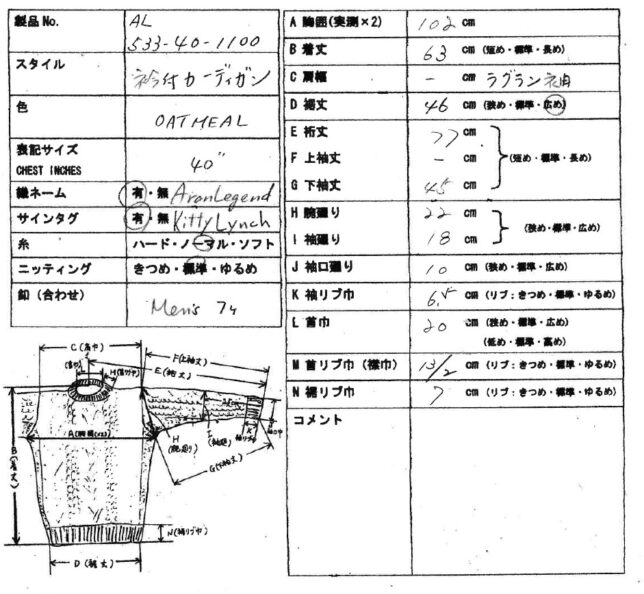 製品No.
AL
533-40-1100
スタイル
衿付カーディガン
色
OATMEAL
表記サイズ
CHEST INCHES
40"
織ネーム
有・無 AranLegend
サインタグ
有・無 Kitty Lynch
糸
ハード・ノーマル・ソフト
ニッティング
きつめ・標準・ゆるめ
釦（合わせ）
Men's 7ヶ
C(肩巾)
F(上袖丈)
E(裄丈)
A(胸囲(×2))
B(着丈)
H
(腕廻り)
G(下袖丈)
N(裾リブ巾)
D(裾丈)
A 胸囲(実測×2) 102 cm
B 着丈 63 cm (短め・標準・長め)
C 肩幅 - cm ラグラン袖
D 裾丈 46 cm (狭め・標準・広め)
E 裄丈 77 cm
F 上袖丈 - cm (短め・標準・長め)
G 下袖丈 45 cm
H 腕廻り 22 cm
(狭め・標準・広め)
I 袖廻り 18 cm
J 袖口廻り 10 cm (狭め・標準・広め)
K 袖リブ巾 6.5 cm (リブ：きつめ・標準・ゆるめ)
L 首巾 20 cm (狭め・標準・広め)
(低め・標準・高め)
M 首リブ巾（襟巾） 13/2 cm (リブ：きつめ・標準・ゆるめ)
N 裾リブ巾 7 cm (リブ：きつめ・標準・ゆるめ)
コメント